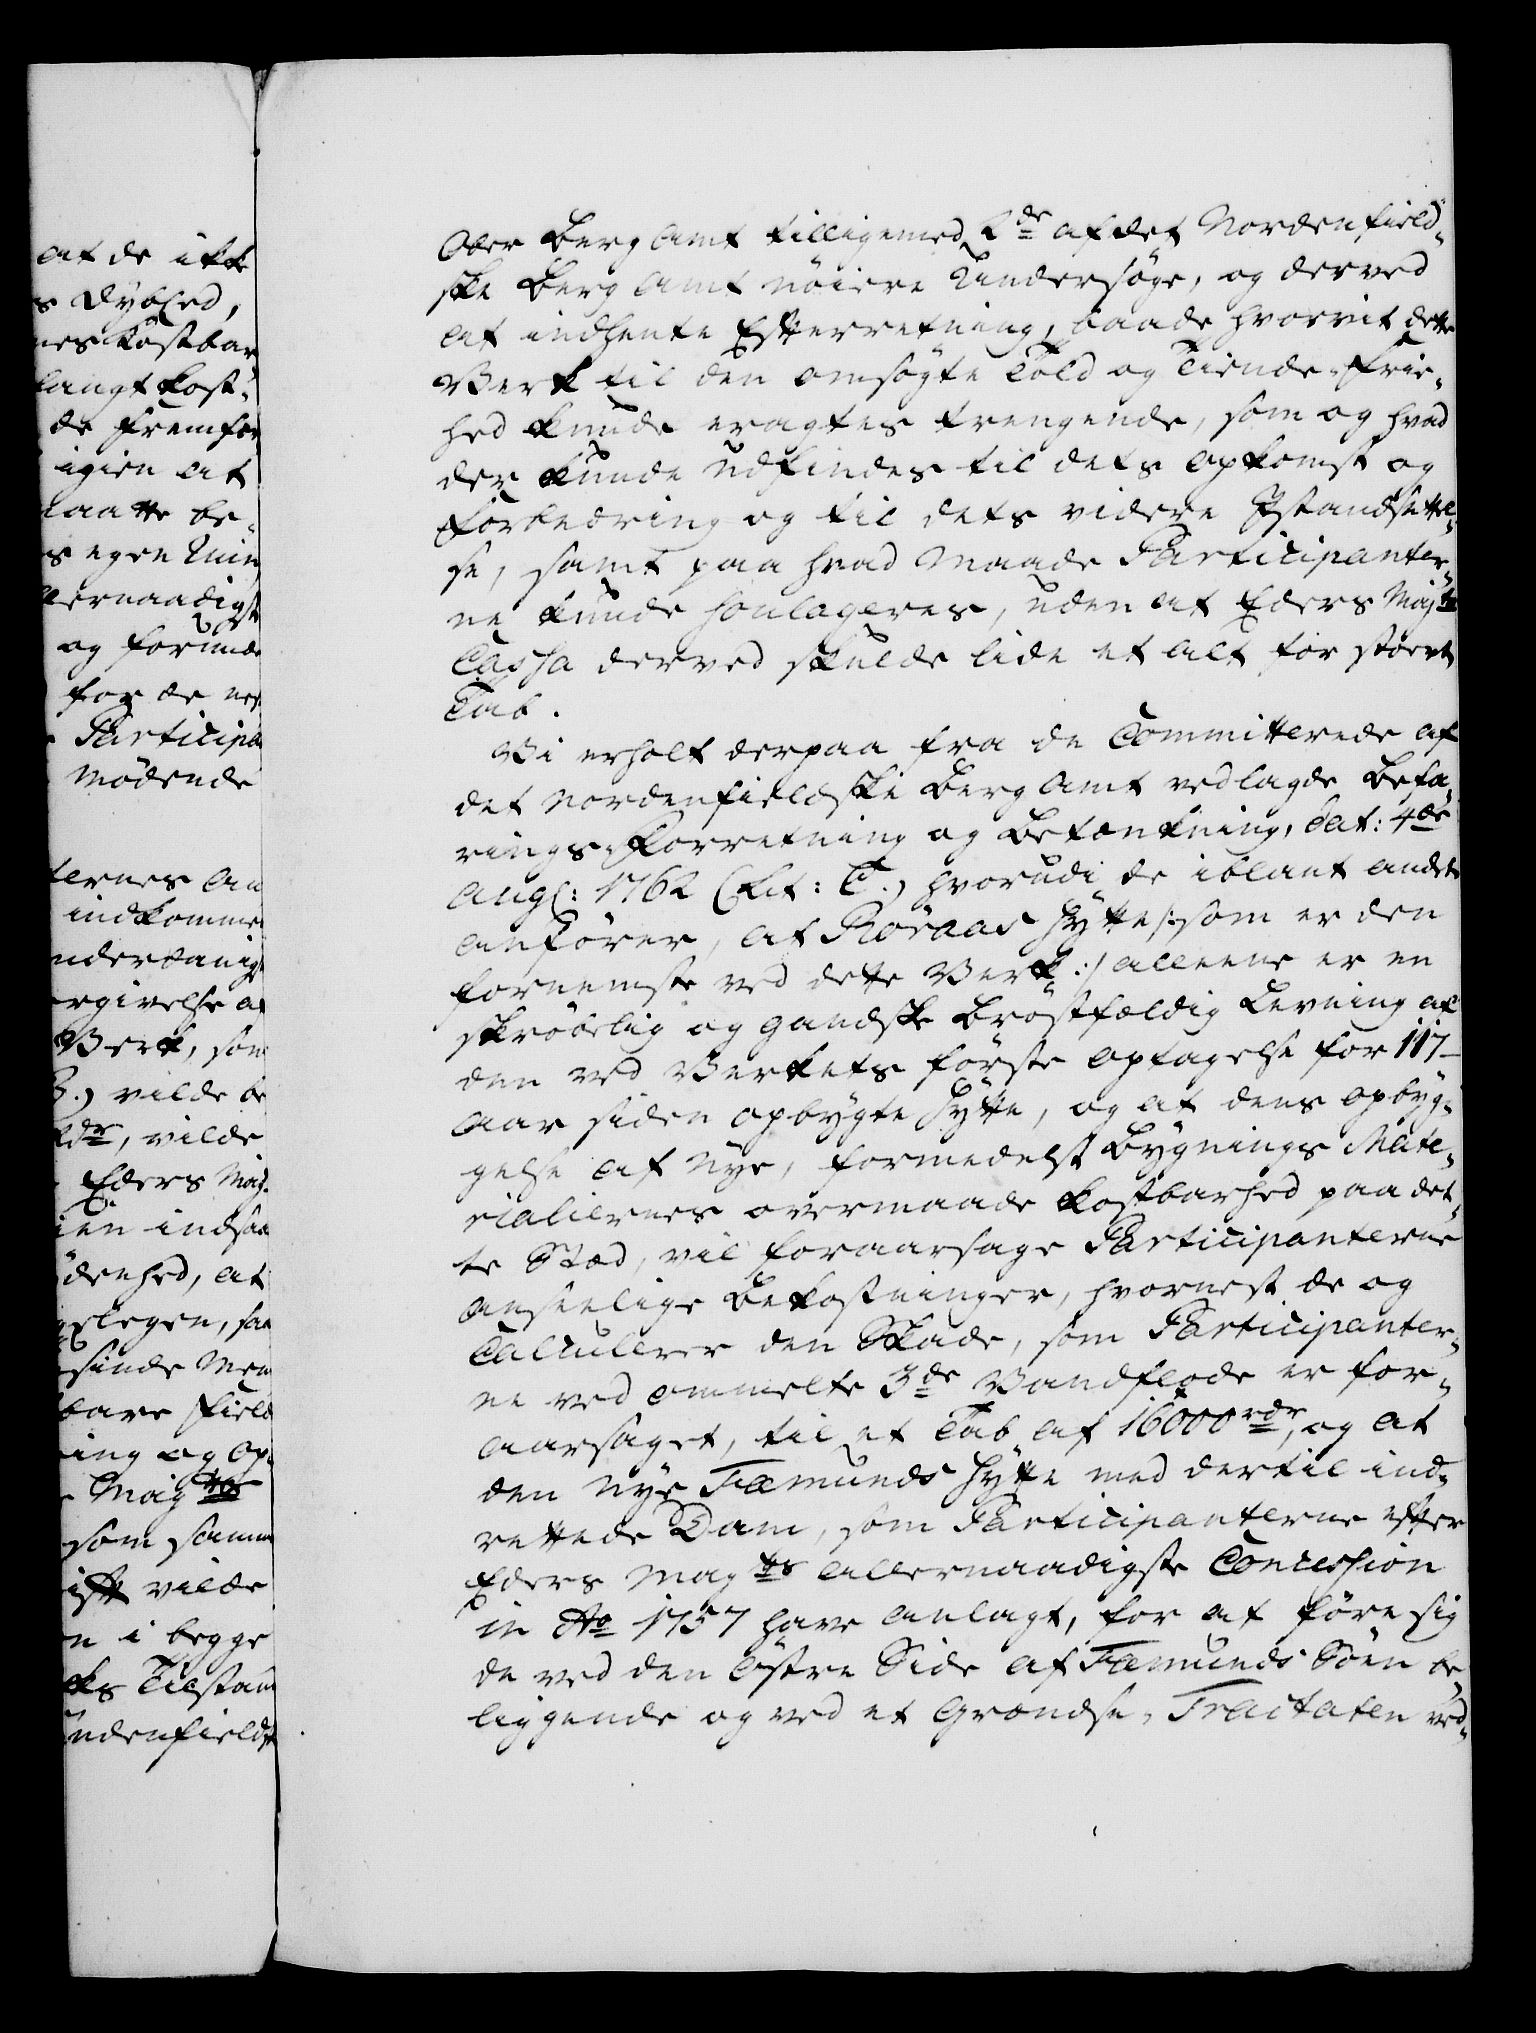 at de ikke
s Dybhed,
nes Kostbar
langt kost-
de fremfor
igien at
maatte be-
s egen Ruin
lernaadigst
og formode
for de ved
Participa
Mødende
ternes An
indkomme
nderdanigst
ergivelse af
Verk, som
B.) vilde be
rdr, vilde
Eders Maj.
ien indsaa
denhed, at
gelegen, saa
sinde Men
bare Field
ing og Op-
Maytts
som samme
ist vilde
n i begge
ks Tilstand
ndenfieldsk
Ober Berg Amt tilligemed 2de af det Nordenfield-
ske Berg Amt nöiere Undersøge, og derved
at indhente Efterretning, baade hvorvit dette
Verk til den omsøgte Told og Tiende-Frie-
hed kunde eragtes trengende, som og hvad
der kunde udfindes til dets Opkomst og
Forbedring og til dets videre Istandsættel-
se, samt paa hvad Maade Participanter-
ne kunde soulageres, uden at Eders Majts
Cassa derved skulde lide et alt for stoert
Tab.
Vi erholt derpaa fra de Committerede af
det Nordenfieldske Berg Amt vedlagde Befa-
rings-Forretning og Betænkning, dat: 4de
Aug: 1762 (Lit: C.) hvorudi de iblant andet
anfører, at Røraas Hytte /:som er den
fornemste ved dette Verk:/ alleene er en
skrøbelig og gandske brøstfældig Levning af
den ved Verkets første Optagelse for 117-
Aar siden opbygte Hytte, og at dens Opbyg-
gelse af Nye, formedelst Bygnings Mate-
rialiernes overmaade Kostbarhed paa det-
te Sted, vil foraarsage Participanterne
anseelige Bekostninger, hvornest de og
Calculerer den Skade, som Participanter-
ne ved ommelte 3de Vandflode er for-
aarsaget, til et Tab af 16000 rdr, og at
den Nye Fæmunds Hytte med dertil ind-
rettede Dam, som Participanterne efter
Eders Maytts allernaadigste Concession
in Ao 1757 have anlagt, for at føre sig
de ved den Østre Side af Fæmunds Søen be-
liggende og ved et Grændse-Tractaten ved-